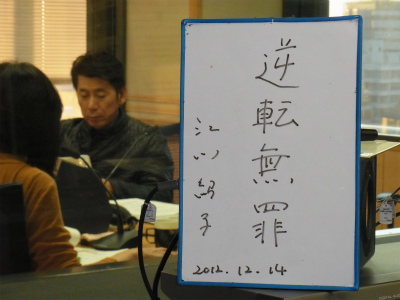 逆転無罪
江川紹子
2012.12.14